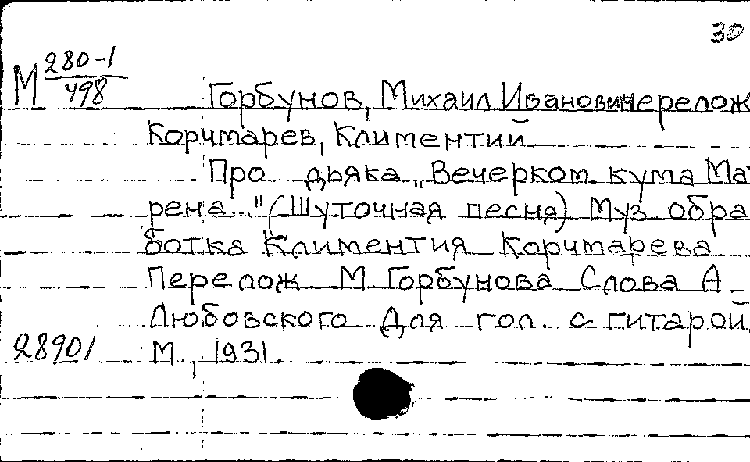 30
М 280-1
498
Горбунов, Михаил Иванович перелож
Корчмарев, Климентий
Про дьяка „Вечерком кума Мат
рена.." (Шуточная песня) Муз обра
ботка Климентия Корчмарева
Перелож М Горбунова Слова А
Любовского Для гол с гитарой
28901 М., 1931.